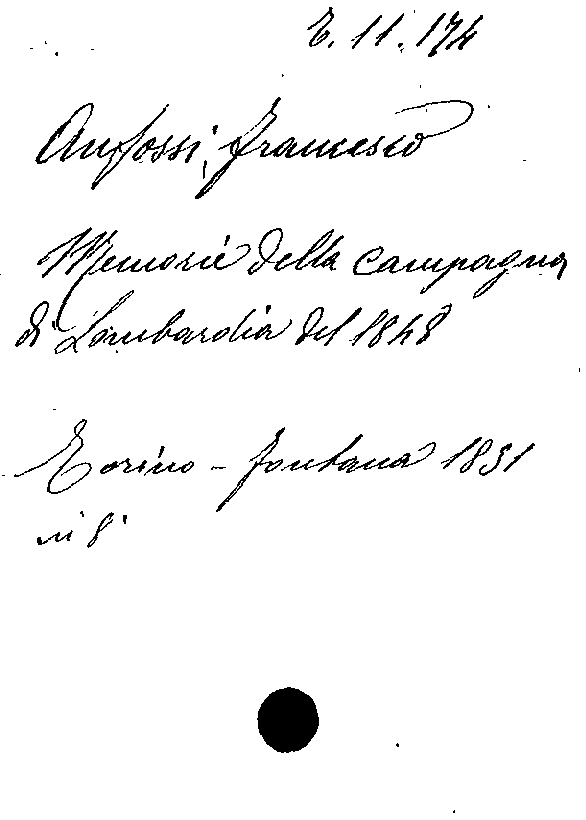 E. 11. 174
Anfossi, Francesco
Memorie della campagna
di Lombardia del 1848
Torino - Fontana 1851
in 8°